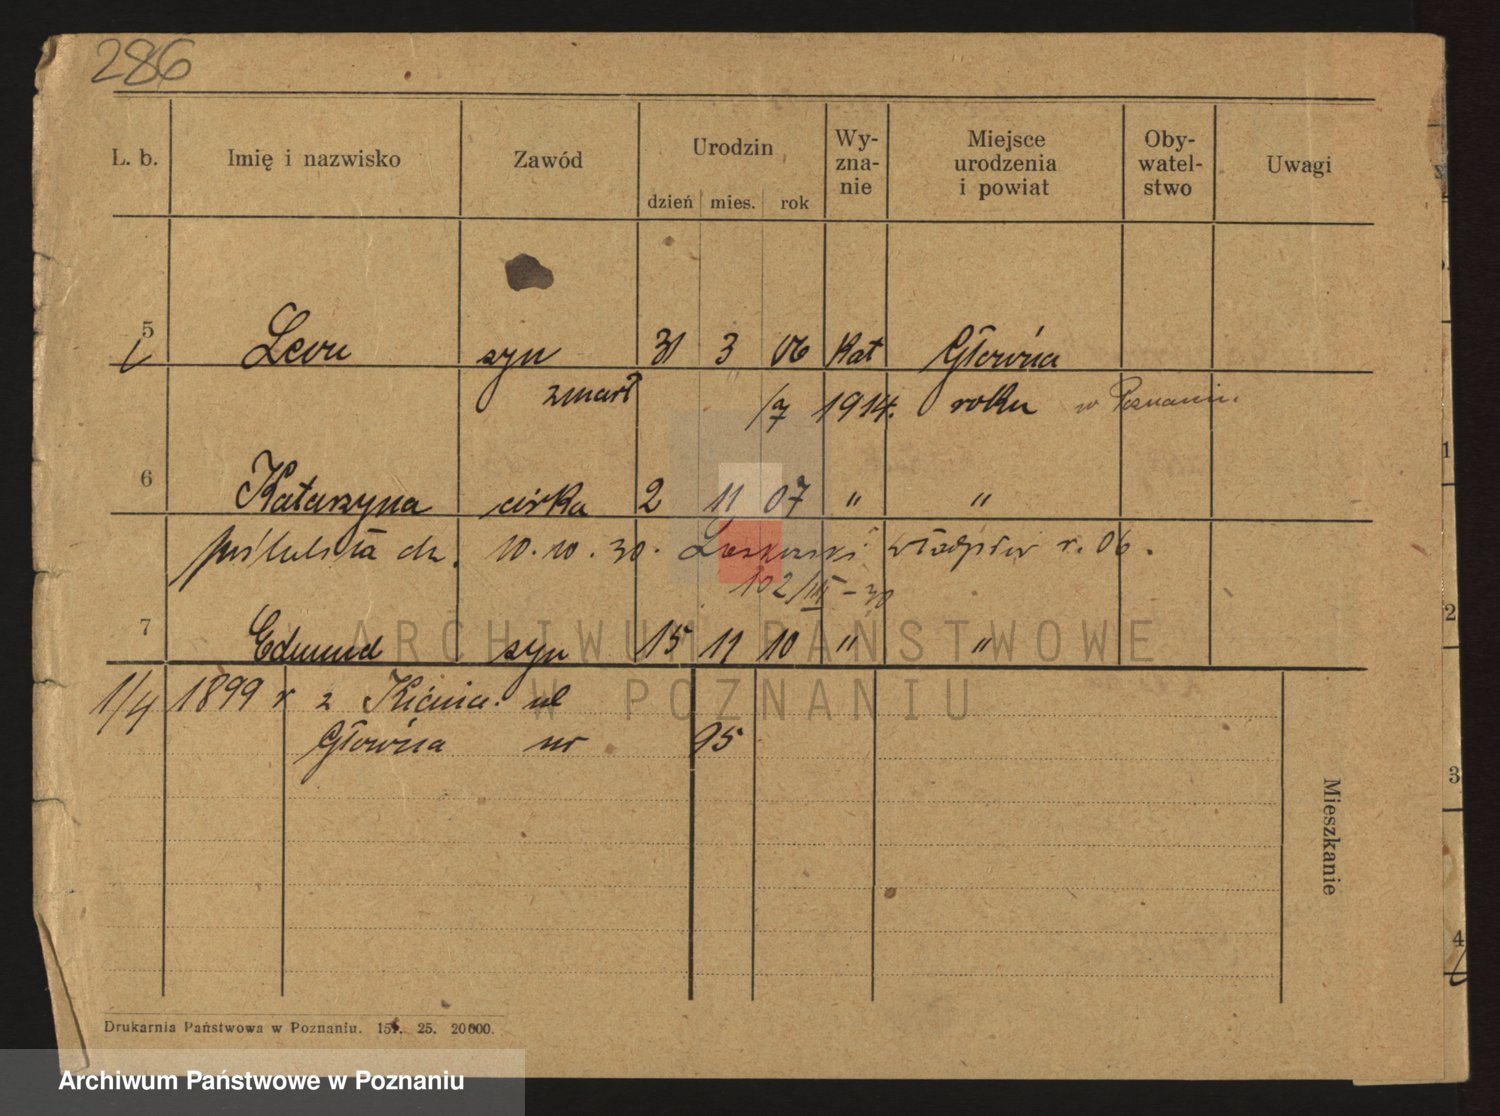 286
L. b. Imię i nazwisko Zawód Urodzin dzień mies. rok Wy-zna-nie Miejsce urodzenia i powiat Oby-watel-stwo Uwagi
5 Leon syn 31 3 06 Kat Główna
zmarł /7 1914. roku w Poznaniu.
6 Katarzyna córka 2 11 07 " "
poślubiła dn. 10.10.30. Władysław r. 06.
102/III-30
7 Edmund syn 15 11 10 " "
1/4 1899 r z Kicina ul
Główna nr 95
Mieszkanie
Drukarnia Państwowa w Poznaniu. 25. 20000.
1
2
3
4
ARCHIWUM PAŃSTWOWE
W POZNANIU
Archiwum Państwowe w Poznaniu